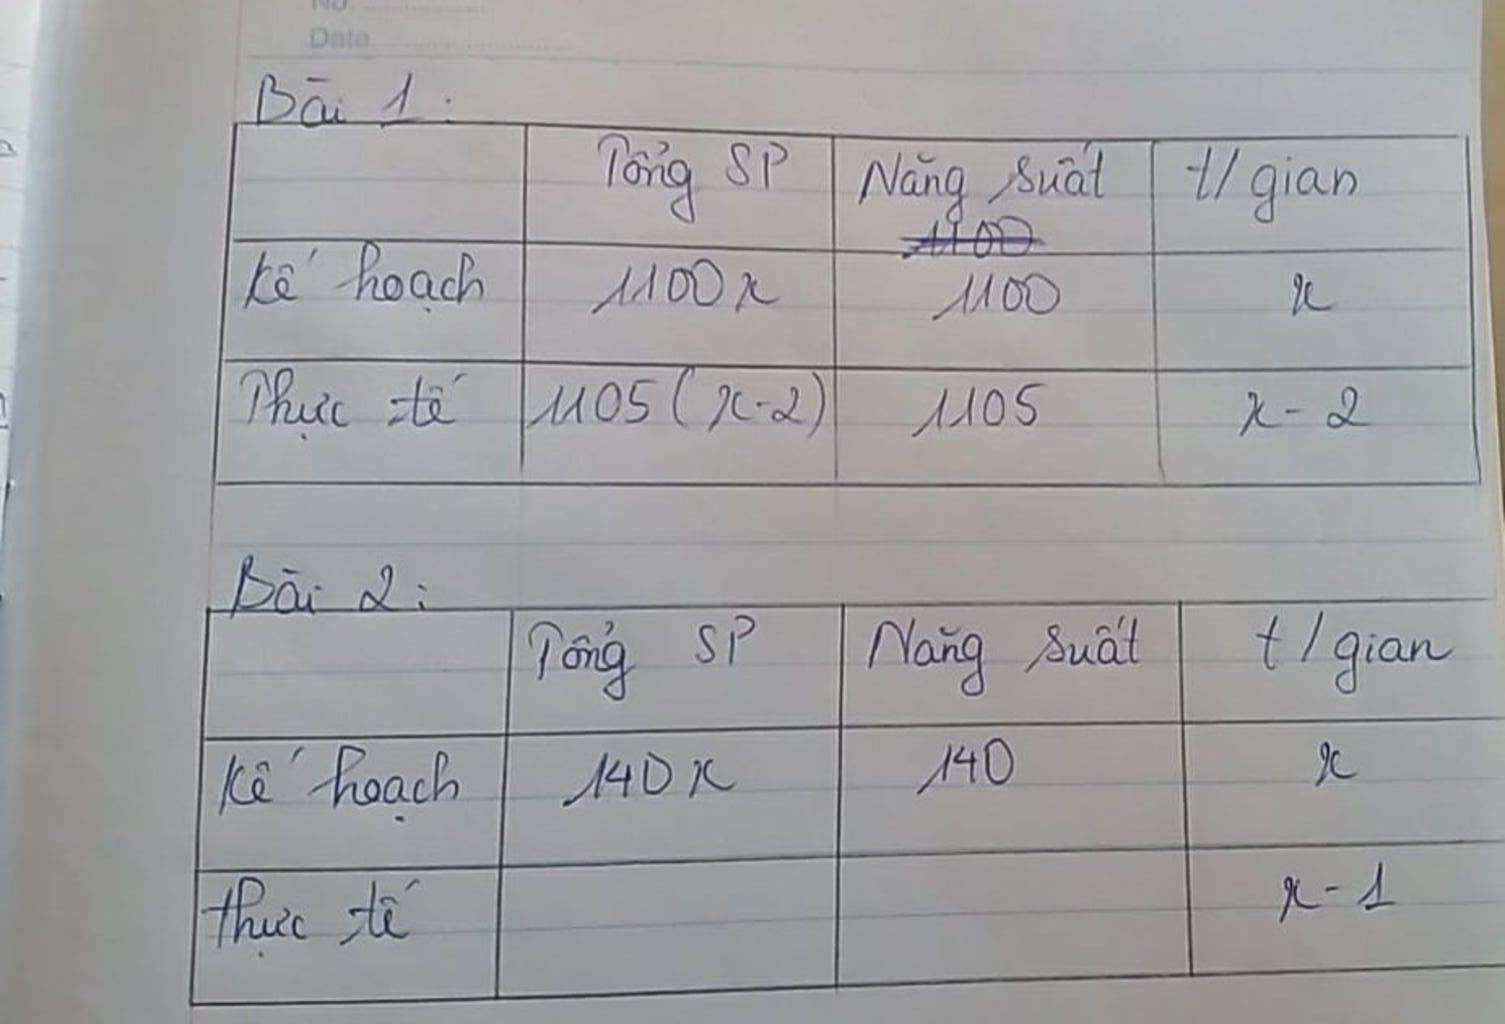 No.
Date
Bài 1:
Tổng SP Năng suất t/gian
1100
Kế hoạch 1100x 1100 x
Thực tế 1105(x-2) 1105 x-2
Bài 2:
Tổng SP Năng suất t/gian
Kế hoạch 140x 140 x
thực tế x-1